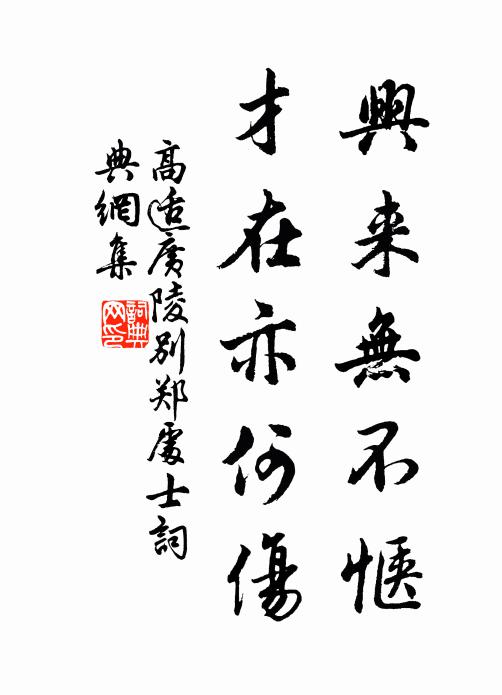 興来無不愜
才在亦何傷
高适廣陵別郑處士詞
典網集
詞典
网印